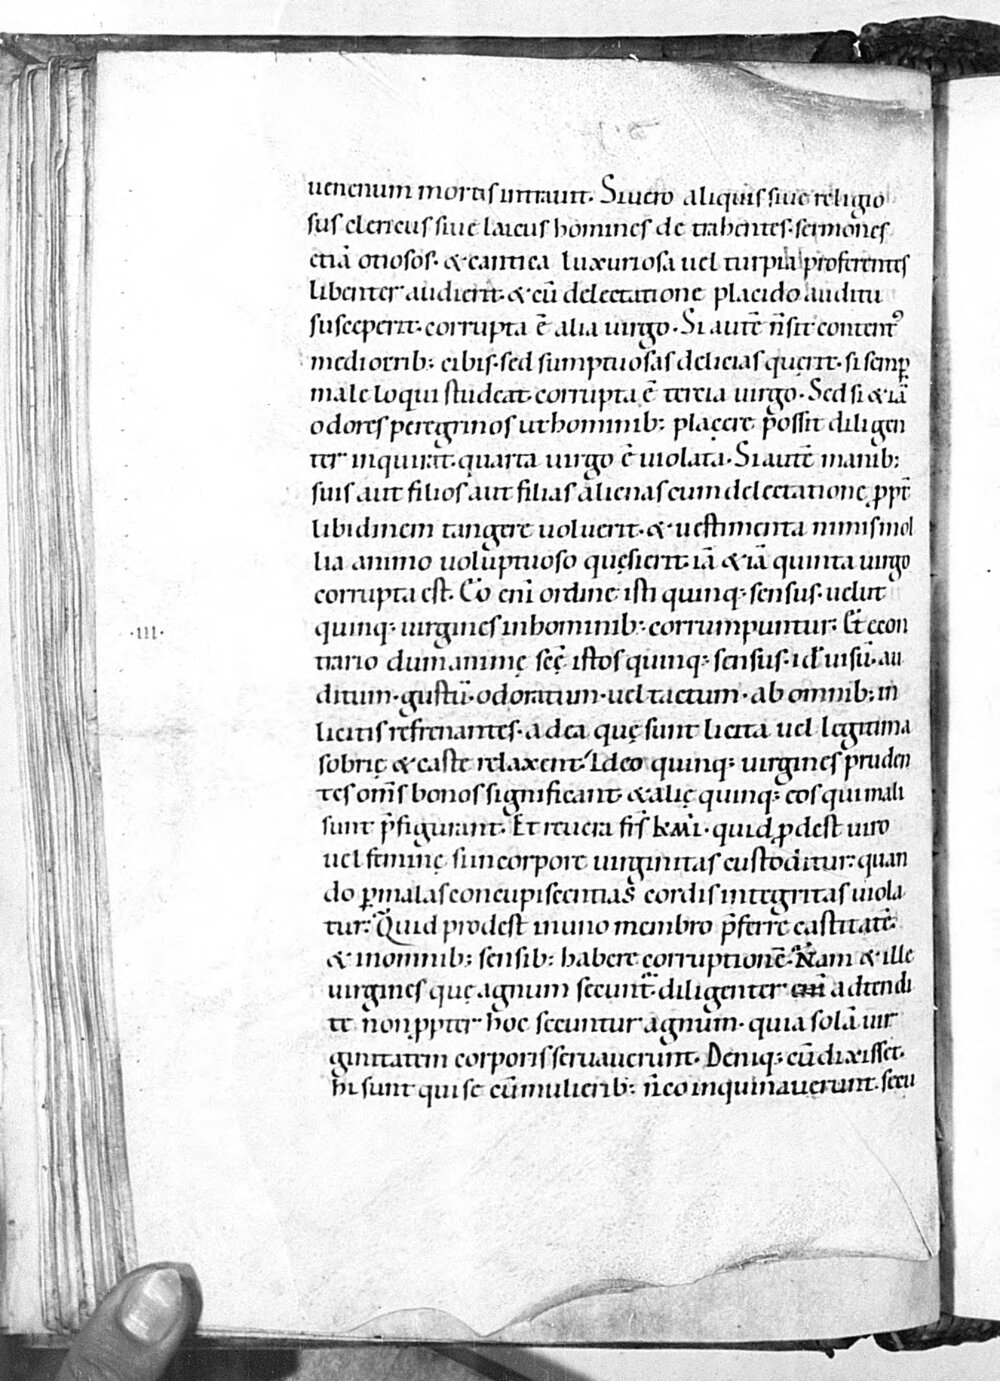 uenenum mortis intrauit. Si uero aliquis siue religio
sus clericus siue laicus homines de trahentes. sermones
etiā otiosos. & cantica luxuriosa uel turpia proferentes
libenter audierit. & cū delectatione placido auditu
susceperit. corrupta ē alia uirgo. Si autē n̄ sit content᾽
mediocrib; cibis. sed sumptuosas delicias quęrit. si semꝑ
male loqui studeat. corrupta ē tercia uirgo. Sed si & iā
odores peregrinos ut hominib; placere possit diligen
ter inquirat. quarta uirgo ē uiolata. Si autē manib;
suis aut filios aut filias alienas cum delectatione ꝓpt̄
libidinem tangere uoluerit. & uestimenta nimis mol
lia animo uoluptuoso quęsierit. iā & iā quinta uirgo
corrupta est. Cō eni ordine isti quinq; sensus. uelut
quinq; uirgines in hominib; corrumpuntur. Et econ
·III·
trario dum animę sc̄ę istos quinq; sensus. id uisū. au
ditum. gustū. odoratum. uel tactum. ab omnib; in
licitis refrenantes. ad ea quę sunt licita uel legitima
sobrię & caste relaxent. Ideo quinq; uirgines pruden
tes om̄s bonos significant. & alię quinq; eos qui mali
sunt p̄figurant. Et reuera fr̄s km̄i. quid ꝓdest uiro
uel feminę si in corpore uirginitas custoditur. quan
do ꝑ malas concupiscentias cordis integritas uiola
tur. Quid prodest in uno membro p̄ferre castitatē.
& in omnib; sensib; habere corruptionē. Nam & ille
uirgines quę agnum secunt̄. diligenter adtendi
te non ꝓpter hoc secuntur agnum. quia solā uir
ginitatem corporis seruauerunt. Deniq; cū dixisset.
hi sunt qui se cū mulierib; n̄ coinquinauerunt. secu